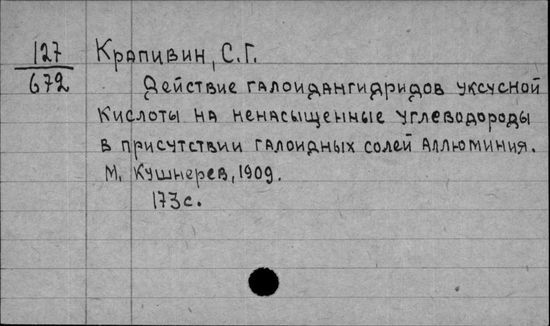 127 Крапивин, С.Г.
672 Действие галоидангидридов уксусной
кислоты на ненасыщенные углеводороды
в присутствии галоидных солей аллюминия.
М. Кушнерев, 1909.
173 с.